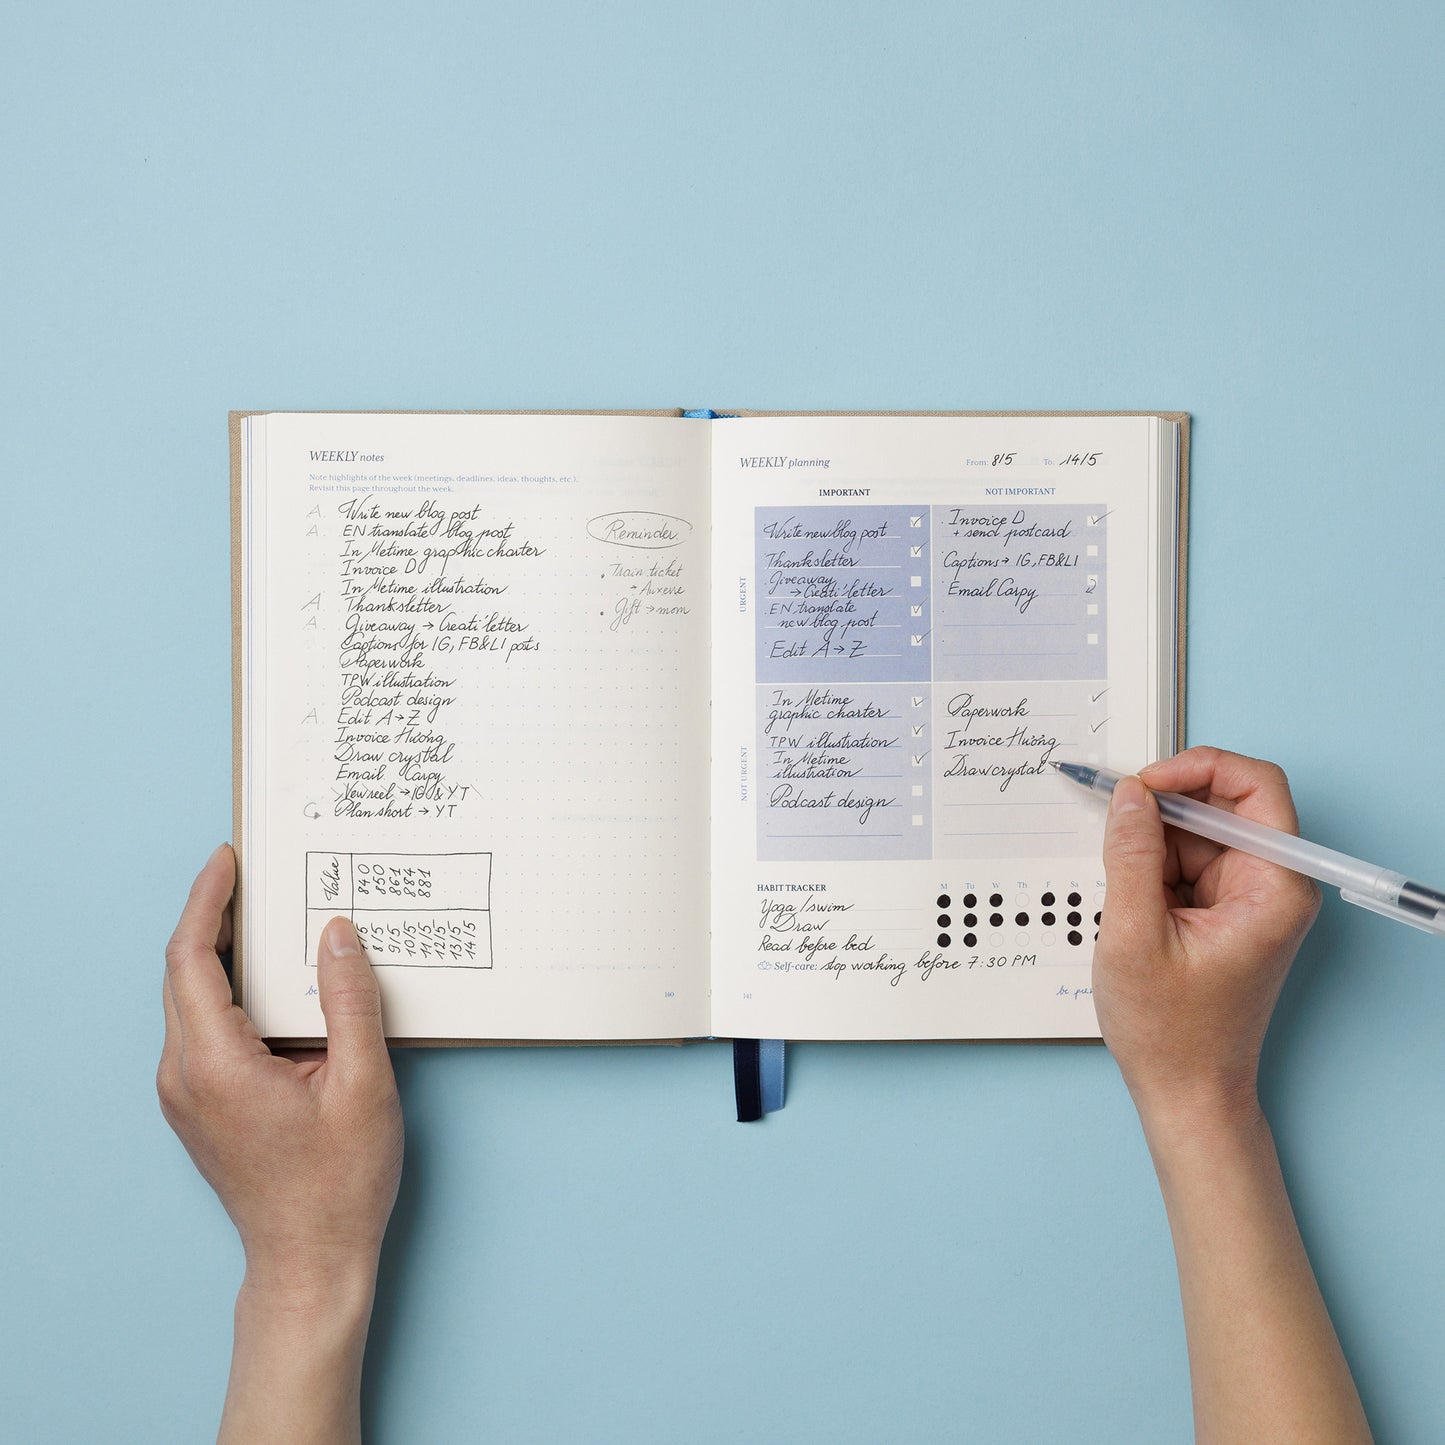 WEEKLY notes
Note highlights of the week (meetings, deadlines, ideas, thoughts, etc.).
Revisit this page throughout the week.
A. Write new blog post
A. EN translate blog post
In Metime graphic charter
Invoice D
In Metime illustration
A. Thanksletter
A. Giveaway → Creati'letter
Captions for IG, FB&LI posts
Paperwork
TPW illustration
Podcast design
A. Edit A→Z
Invoice Hương
Draw crystal
Email Carpy
New reel → IG & YT
Plan short → YT
Reminder
• Train ticket
→ Auxerre
• Gift → mom
Value
840
850
861
884
881
8/5
9/5
10/5
11/5
12/5
13/5
14/5
be
160
WEEKLY planning
From: 8/5 To: 14/5
IMPORTANT
NOT IMPORTANT
URGENT
Write new blog post
Thanksletter
Giveaway
→ Creati'letter
EN translate
new blog post
Edit A→Z
Invoice D
+ send postcard
Captions → IG, FB&LI
Email Carpy
NOT URGENT
In Metime
graphic charter
TPW illustration
In Metime
illustration
Podcast design
Paperwork
Invoice Hương
Draw crystal
HABIT TRACKER
M Tu W Th F Sa Su
Yoga/swim
Draw
Read before bed
Self-care: stop working before 7:30 PM
141
be